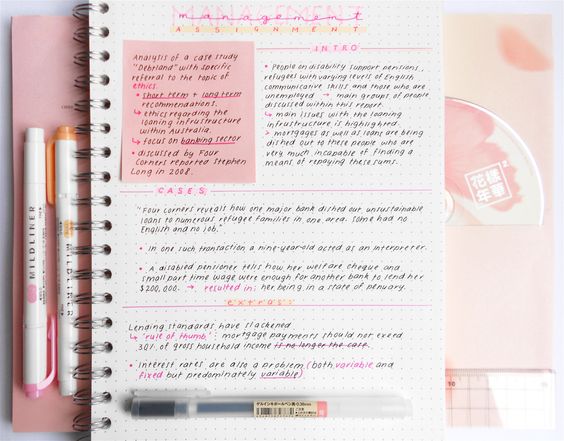 MANAGEMENT
management
ASSIGNMENT
Analysis of a case study
"Debtland" with specific
referral to the topic of
ethics.
• short term + long term
recommendations.
↳ ethics regarding the
loaning infrustructure
within Australia.
↳ focus on banking sector
• discussed by Four
Corners reported Stephen
Long in 2008.
INTRO
• People on disability support pensions,
refugees with varying levels of English
communicative skills and those who are
unemployed → main groups of people
discussed within this report.
↳ main issues with the loaning
infrustructure is highlighted.
> mortgages as well as loans are being
dished out to these people who are
very much incapable of finding a
means of repaying these sums.
CASES
"Four corners reveals how one major bank dished out unsustainable
loans to numerous refugee families in one area. Some had no
English and no job."
• In one such transaction a nine-year-old acted as an interpreter.
• A disabled pensioner tells how her welfare cheque and
small part time wage were enough for another bank to send her
$200,000. → resulted in: her being in a state of penuary.
extras:
Lending standards have slackened
↳ 'rule of thumb': mortgage payments should not exceed
30% of gross household income is no longer the case.
• Interest rates are also a problem (both variable and
fixed but predominately variable)
MILDLINER
MILDLINER
花樣
年華
ゲルインキボールペン黒・0.38mm
10